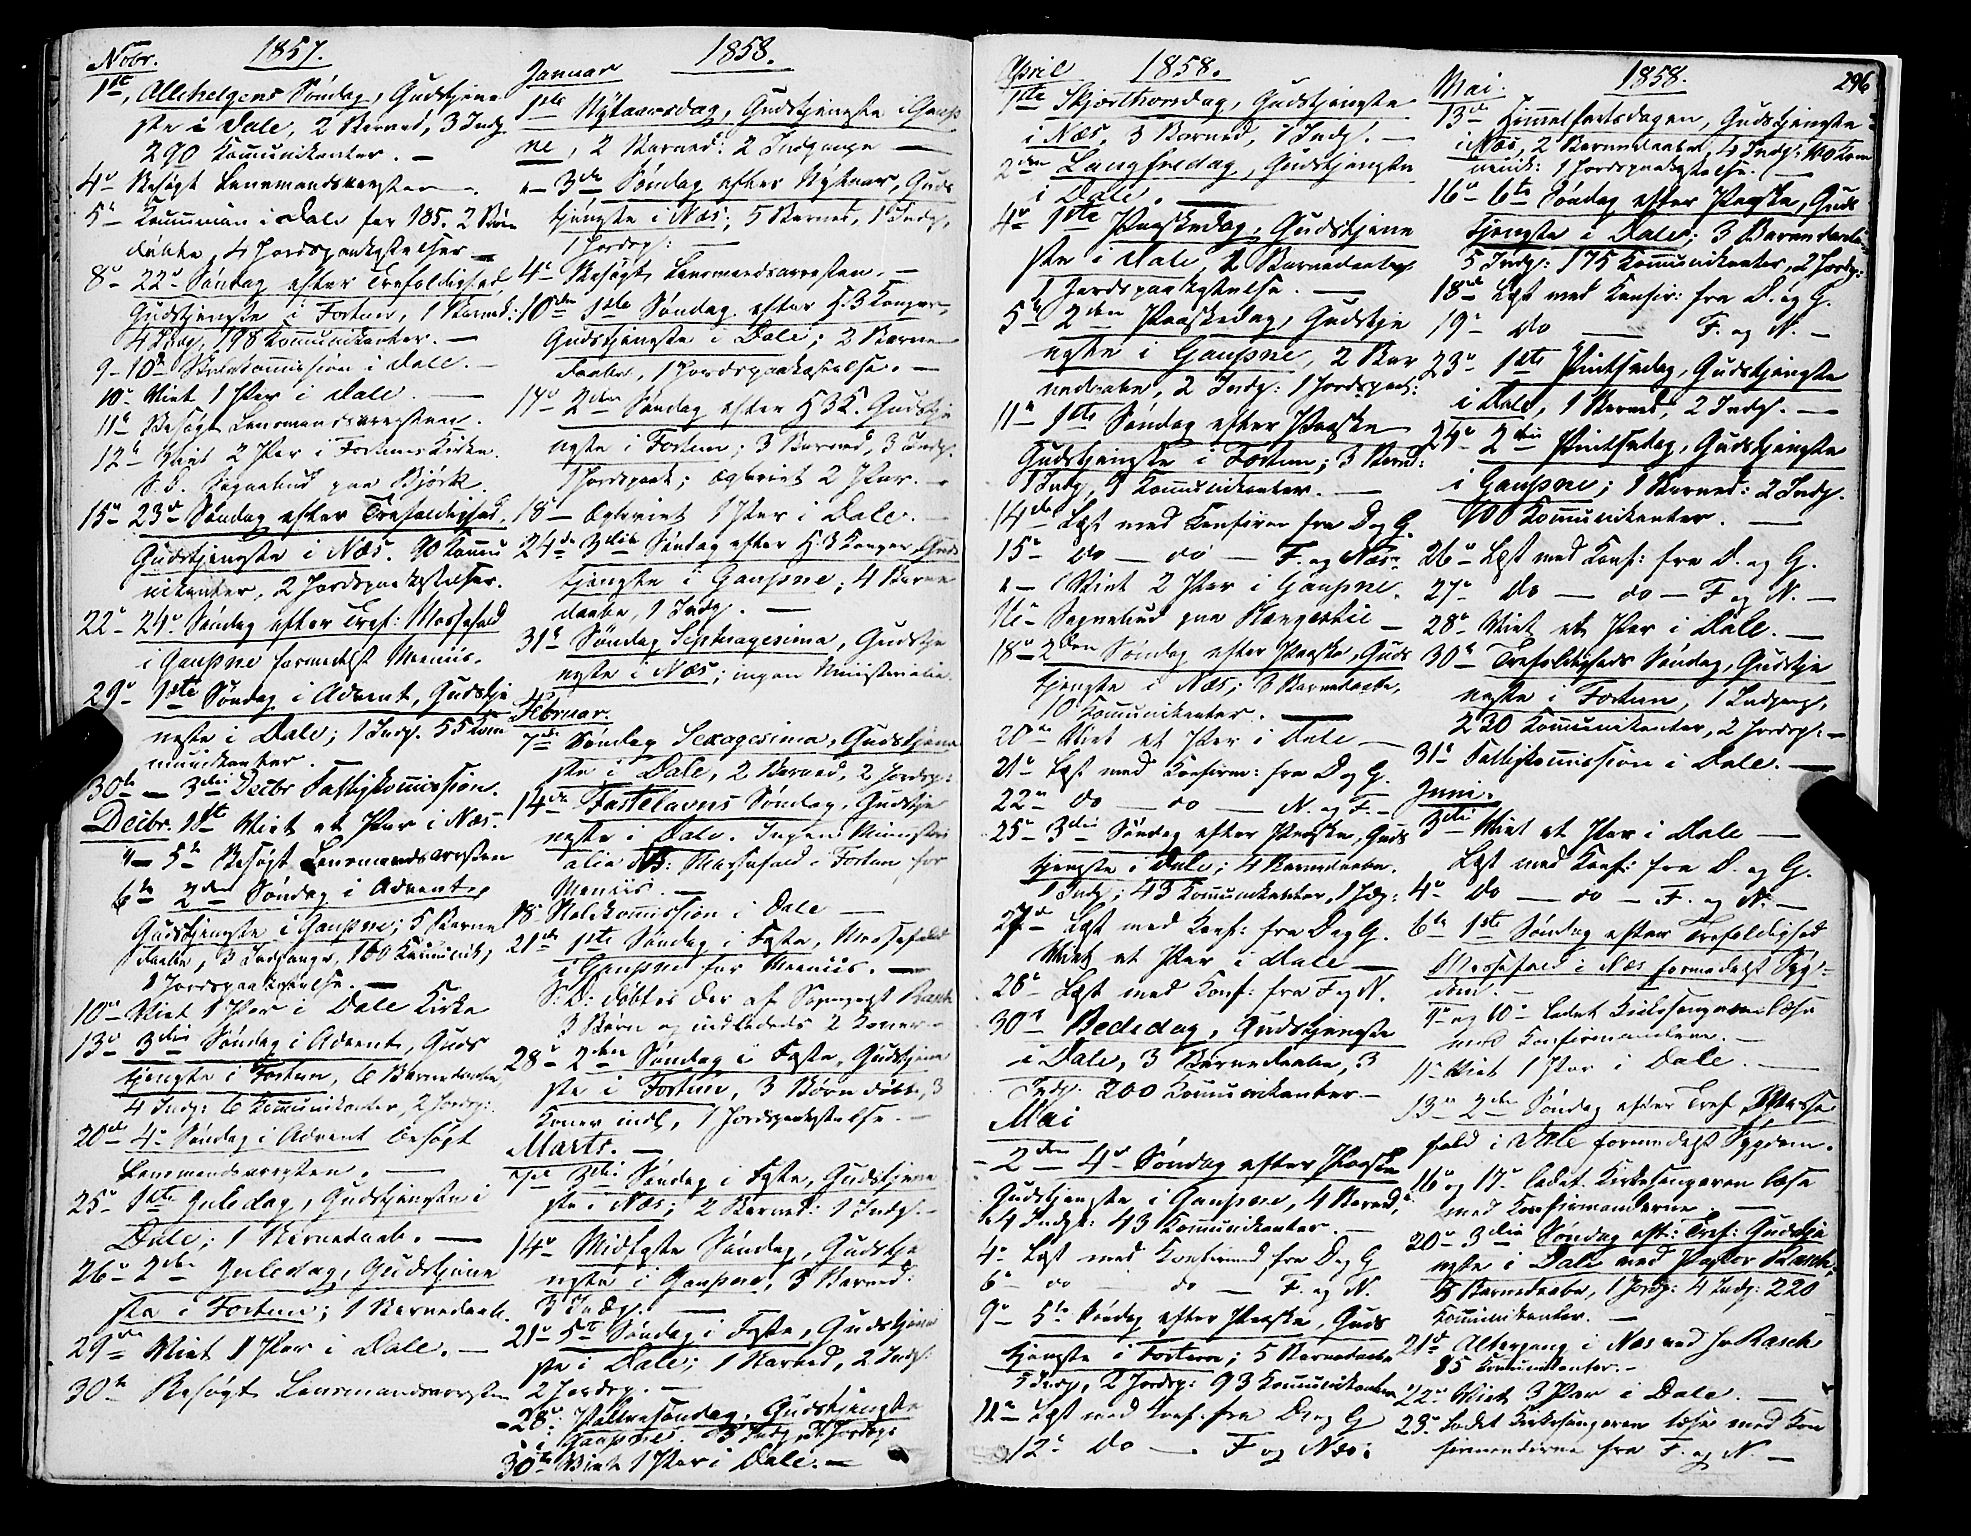 Nobr. 1857.
1ste, Allehelgens Søndag, Gudstjene
ste i Dale, 2 Barned, 3 Indg.
290 Kommunikanter. —
4de Besøgt Lensmandsarresten —.
5te Kommun i Dale for 185. 2 Børn
døbte, 4 Jordspaakastelser —
8de — 22de Søndag efter Trefoldighed
Gudstjeneste i Fortun, 1 Barned:
4 Indg, 198 Kommunikanter. —
9 — 10de Skolekommission i Dale. —
10de Viet 1 Par i Dale. —
11te Besøgt Lensmandsarresten.
12te Viet 2 Par i Fortuns Kirke.
S. D. Sognebud paa Bjørk.
15de 23de Søndag efter Trefoldighed,
Gudstjeneste i Næs. 90 Kommu
nikanter, 2 Jordspaakastelser.
22de — 24de Søndag efter Tref: Messefald
i Gaupne formedelst Meniis.
29de — 1ste Søndag i Advent, Gudstje
neste i Dale; 1 Indg. 55 Kom
munikanter. —
30te — 3die Decbr Fattigkommission.
Decbr. 1ste Viet et Par i Næs.
" — 5te Besøgt Lensmandsarresten
6te 2den Søndag i Advent,
Gudstjeneste i Gaupne; 5 Barne
daabe, 3 Indgange, 100 Kommunik;
1 Jordspaakastelse. —
10de Viet 1 Par i Dale Kirke
13de 3die Søndag i Advent, Guds
tjeneste i Fortun, 6 Barnedaabe,
4 Indg: 6 Kommunikanter, 2 Jordsp:
20de 4de Søndag i Advent besøgt
Lensmandsarresten. —
25de 1ste Juledag, Gudstjeneste i
Dale; 1 Barnedaab. —
26de 2den Juledag, Gudstjene
ste i Fortun; 1 Barnedaab.
29de Viet 1 Par i Dale. —
30te Besøgt Lensmandsarresten
Januar 1858.
1ste Nytaarsdag, Gudstjeneste i Gaup
ne, 2 Barned: 2 Indgange —
" — 3die Søndag efter Nytaar, Guds
tjeneste i Næs; 5 Barned, 1 Indg,
1 Jordsp: —
4de Besøgt Lensmandsarresten. —
10de 1ste Søndag efter H. 3 Konger,
Gudstjeneste i Dale; 2 Barne
daabe, 1 Jordspaakastelse. —
17de 2den Søndag efter H 3 K. Gudstje
neste i Fortun; 3 Barned, 3 Indg.
1 Jordspaak; Egteviet 2 Par. —
18 — Egteviet 1 Par i Dale. —
24de 3die Søndag efter H. 3 Konger, Guds
tjeneste i Gaupne; 4 Barne
daabe, 1 Indg. —
31te Søndag Septuagesima, Gudstje
neste i Næs; ingen Ministerialia.
Februar.
7de Søndag Sexagesima, Gudstjene
ste i Dale, 2 Barned, 2 Jordsp:
14de Fastelavns Søndag, Gudstje
neste i Dale. Ingen Ministeri
alia. NB: Messefald i Fortun for
Meniis. —
18 Skolekommission i Dale —
21de 1ste Søndag i Faste, Messefald
i Gaupne for Meniis. —
S: D: døbtes der af Sognepræst Rasch
3 Børn og indlededs 2 Koner. —
28de 2den Søndag i Faste, Gudstjene
ste i Fortun, 3 Børn døbte, 3
Koner indl, 1 Jordspaakastelse. —
Marts. —
7de 3die Søndag i Faste, Gudstjene
ste i Næs; 2 Barned: 1 Indg. —
14de Midfaste Søndag, Gudstje
neste i Gaupne, 3 Barned:
3 Indg. —
21de 5te Søndag i Faste, Gudstjene
ste i Dale; 1 Barned, 2 Indg:
2 Jordsp. —
28de: Palmesøndag, Gudstjeneste
i Gaupne. 3 Indg, Jordsp:
30te Viet 1 Par i Dale. —
April 1858.
1ste Skjærthorsdag, Gudstjeneste
i Næs, 3 Barned, 1 Indg. —
2den Langfredag, Gudstjeneste
i Dale. —
4de 1ste Paaskedag, Gudstjene
ste i Dale, 2 Barnedaabe,
1 Jordspaakastelse. —
5te 2den Paaskedag, Gudstje
neste i Gaupne, 2 Bar
nedaabe, 2 Indg: 1 Jordspaak:
11te 1ste Søndag efter Paaske
Gudstjeneste i Fortun; 3 Barned:
1 Indg, 9 Kommunikanter. —
14de Læst med Konfirm fra D og G.
15de do — do — F. og Næs.
" — Viet 2 Par i Gaupne.
16de Sognebud paa
18de — 2den Søndag efter Paaske, Guds
tjeneste i Næs; 3 Barnedaabe,
10 Kommunikanter. —
20de Viet et Par i Dale —
21de Læst med Konfirm: fra D og G.
22de do — do — N. og F. —
25de 3die Søndag efter Paaske, Guds
tjeneste i Dale; 4 Barnedaabe.
1 Indg; 43 Kommunikanter, 1 Jdsp:
27de Læst med Konf: fra D og G.
Viet et Par i Dale —
28de Læst med Konf: fra F og N.
30te Bededag, Gudstjeneste
i Dale, 3 Barnedaabe, 3
Indg: 200 Kommunikanter. —
Mai
— 2den 4de Søndag efter Paaske
Gudstjeneste i Gaupne, 4 Barned,
4 Indg: 43 Kommunikanter. —
4de Læst med Konfirmd fra D og G
6te do do — F. og N.
9de 5te Søndag efter Paaske, Guds
tjeneste i Fortun; 5 Barnedaabe
5 Indg, 2 Jordsp: 93 Kommunikanter
11te Læst med Konf. fra D og G
12te do — F og Næs:
Mai. 1858. 296
13de Himmelfartsdagen, Gudstjeneste
i Næs, 2 Barnedaabe, 4 Indg: 110 Kom
munik: 1 Jordspaakastelse. —
16de 6te Søndag efter Paaske, Guds
tjeneste i Dale; 3 Barnedaabe
5 Indg: 175 Kommunikanter, 2 Jordsp:
18de Læst med Konfir: fra D. og G.
19de do — F. og N. —
23de 1ste Pintsedag, Gudstjeneste
i Dale, 1 Barned, 2 Indg. —
24de 2den Pintsedag, Gudstjeneste
i Gaupne; 1 Barned: 2 Indg.
100 Kommunikanter. —
26de Læst med Konf: fra D. og G.
27de do — do — F og N. —
28de Viet et Par i Dale. —
30te Trefoldigheds Søndag, Gudstje
neste i Fortun, 1 Indgang,
230 Kommunikanter, 2 Jordsp. —
31te Fattigkommission i Dale. —
Juni.
3die Viet et Par i Dale —
Læst med Konf: fra D. og G.
4de do — do — F. og N. —
6te 1ste Søndag efter Trefoldighed
Messefald i Næs formedelst Syg
dom. —
9de og 10de ladet Kirkesangeren læse
med Konfirmanderne. —
11te Viet 1 Par i Dale. —
13de 2den Søndag efter Tref. Messe
fald i Dale formedelst Sygdom.
16 og 17de ladet Kirkesangeren læse
med Konfirmanderne. —
20de 3die Søndag eft: Tref: Gudstje
neste i Dale ved Pastor Rasch;
3 Barnedaabe, 1 Jordsp: 4 Indg: 220
Kommunikanter. —
21de Altergang i Næs ved Hr Rasch
85 Kommunikanter. —
22de Viet 3 Par i Dale. —
23de Ladet Kirkesangeren læse med Kon
firmanderne fra F. og N. —